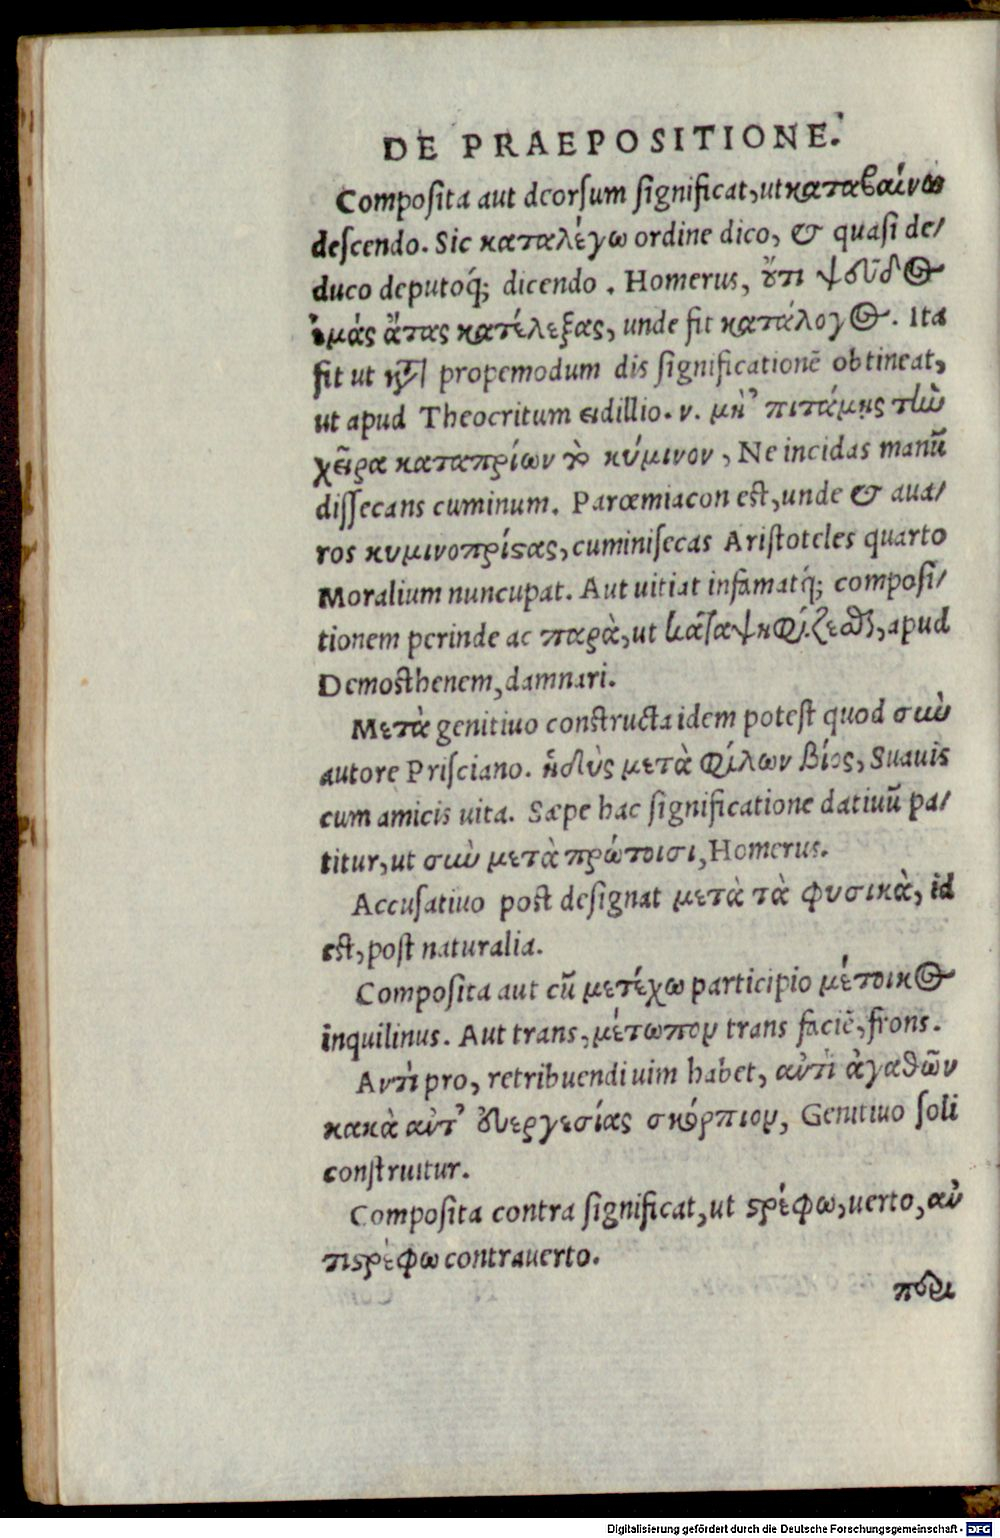 DE PRAEPOSITIONE.
Composita aut deorsum significat, ut καταβαίνω
descendo. Sic καταλέγω ordine dico, & quasi de/
duco deputoq́; dicendo. Homerus, οὔτι ψεῦδος
ἐμάς ἄτας κατέλεξας, unde fit κατάλογος. Ita
fit ut κατὰ propemodum dis significationē obtineat,
ut apud Theocritum eidillio. v. μὴ ᾽πιτάμῃς τὴν
χεῖρα καταπρίων τὸ κύμινον, Ne incidas manū
dissecans cuminum. Parœmiacon est, unde & aua/
ros κυμινοπρίστας, cuminisecas Aristoteles quarto
Moralium nuncupat. Aut uitiat infamatq́; composi/
tionem perinde ac παρὰ, ut καταψηφίζεσθαι, apud
Demosthenem, damnari.
Μετὰ genitiuo constructa idem potest quod σὺν
autore Prisciano. ἡδὺς μετὰ φίλων βίος, Suauis
cum amicis uita. Sæpe hac significatione datiuū pa/
titur, ut σὺν μετὰ πρώτοισι, Homerus.
Accusatiuo post designat μετὰ τὰ φυσικὰ, id
est, post naturalia.
Composita aut cū μετέχω participio μέτοικος
inquilinus. Aut trans, μέτωπον trans faciē, frons.
Αντὶ pro, retribuendi uim habet, αὐτὶ ἀγαθῶν
κακὰ αὐτ᾽ ευεργεσίας σκόρπιον, Genitiuo soli
construitur.
Composita contra significat, ut στρέφω, uerto, αὐ
τιστρέφω contrauerto.
περι
Digitalisierung gefördert durch die Deutsche Forschungsgemeinschaft - DFG